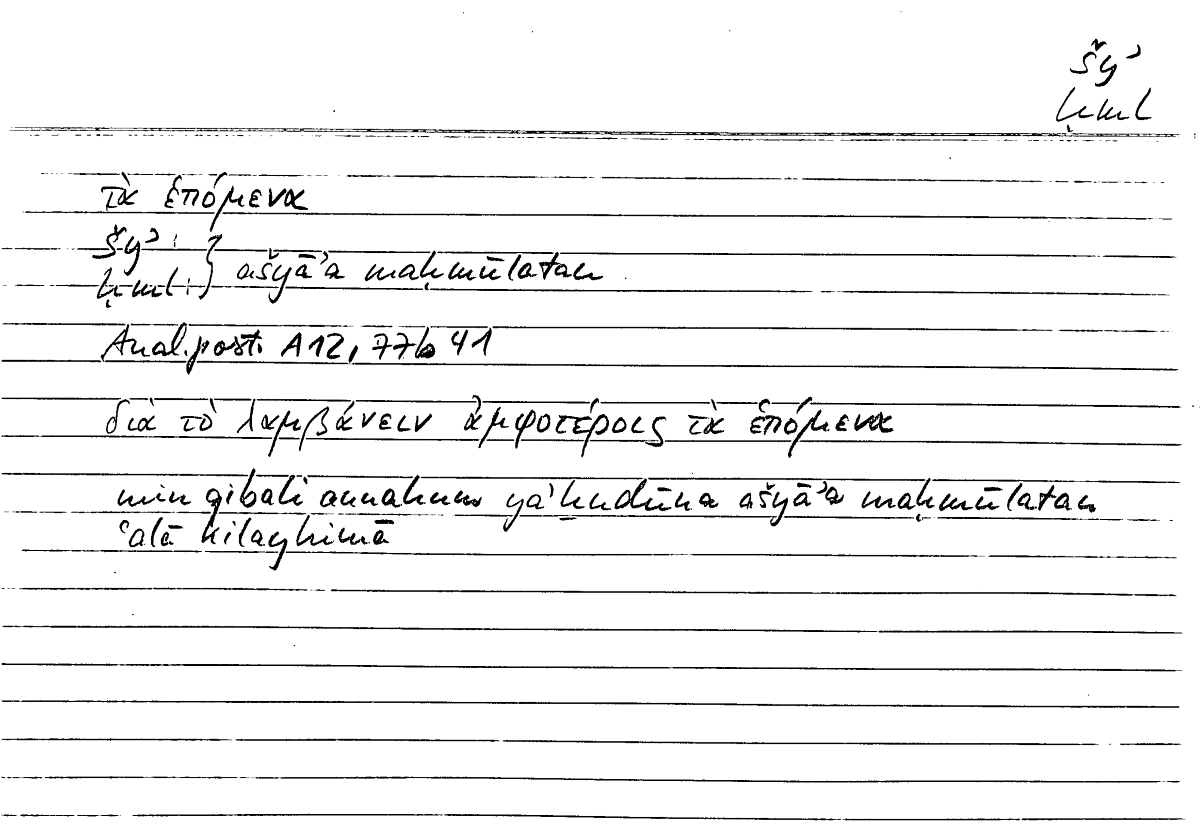 šyʾ
ḥml
τὰ ἑπόμενα
šyʾ :
ḥml : } ašyāʾa maḥmūlatan
Anal. post. A12, 77b 41
διὰ τὸ λαμβάνειν ἀμφοτέροις τὰ ἑπόμενα
min qibali annahum yaʾḫudūna ašyāʾa maḥmūlatan
ʿalā kilayhimā